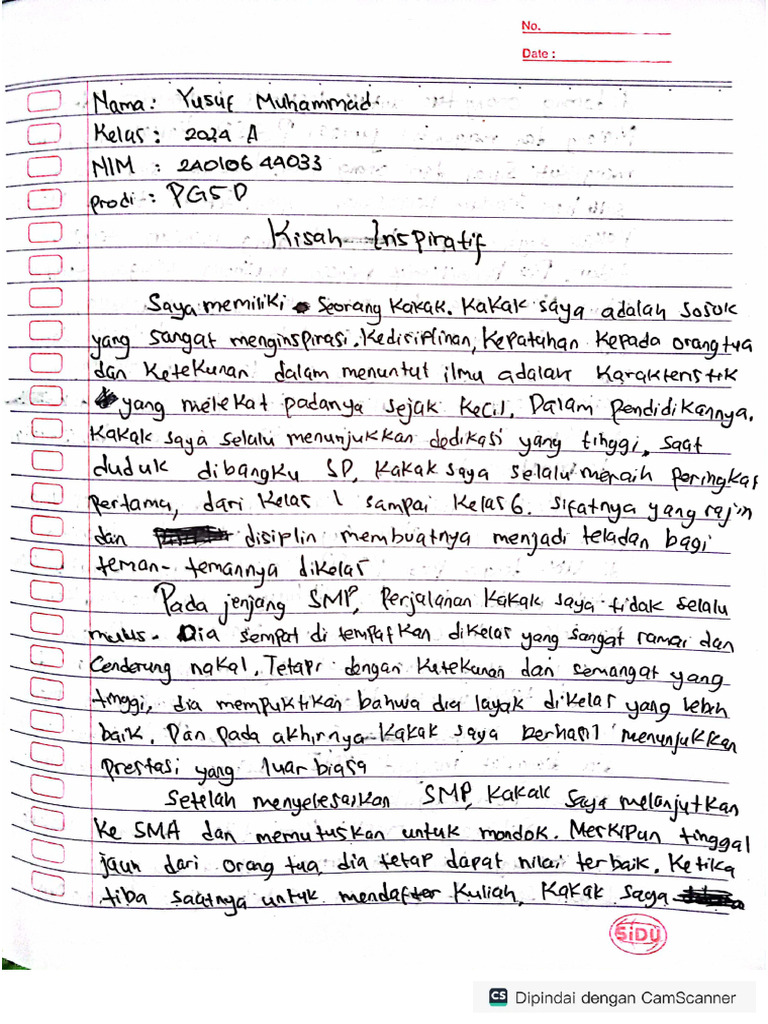 No.
Date :
Nama : Yusuf Muhammad
Kelas : 2024 A
NIM : 24010644033
prodi : PGSD
Kisah Inspiratif
Saya memiliki seorang kakak. Kakak saya adalah sosok
yang sangat menginspirasi. Kedisiplinan, kepatuhan kepada orang tua
dan ketekunan dalam menuntut ilmu adalah karakteristik
yang melekat padanya sejak kecil. Dalam pendidikannya.
Kakak saya selalu menunjukkan dedikasi yang tinggi. saat
duduk dibangku SD, kakak saya selalu meraih peringkat
pertama, dari kelas 1 sampai kelas 6. sifatnya yang rajin
dan disiplin membuatnya menjadi teladan bagi
teman-temannya dikelas
Pada jenjang SMP, perjalanan kakak saya tidak selalu
mulus. Dia sempat di tempatkan dikelas yang sangat ramai dan
cenderung nakal. Tetapi dengan ketekunan dan semangat yang
tinggi, dia mempuktikan bahwa dia layak dikelas yang lebih
baik. Dan pada akhirnya kakak saya berhasil menunjukkan
prestasi yang luar biasa
Setelah menyelesaikan SMP, kakak saya melanjutkan
ke SMA dan memutuskan untuk mondok. Meskipun tinggal
jauh dari orang tua, dia tetap dapat nilai terbaik. Ketika
tiba saatnya untuk mendaftar kuliah, kakak saya
SiDU
CS Dipindai dengan CamScanner